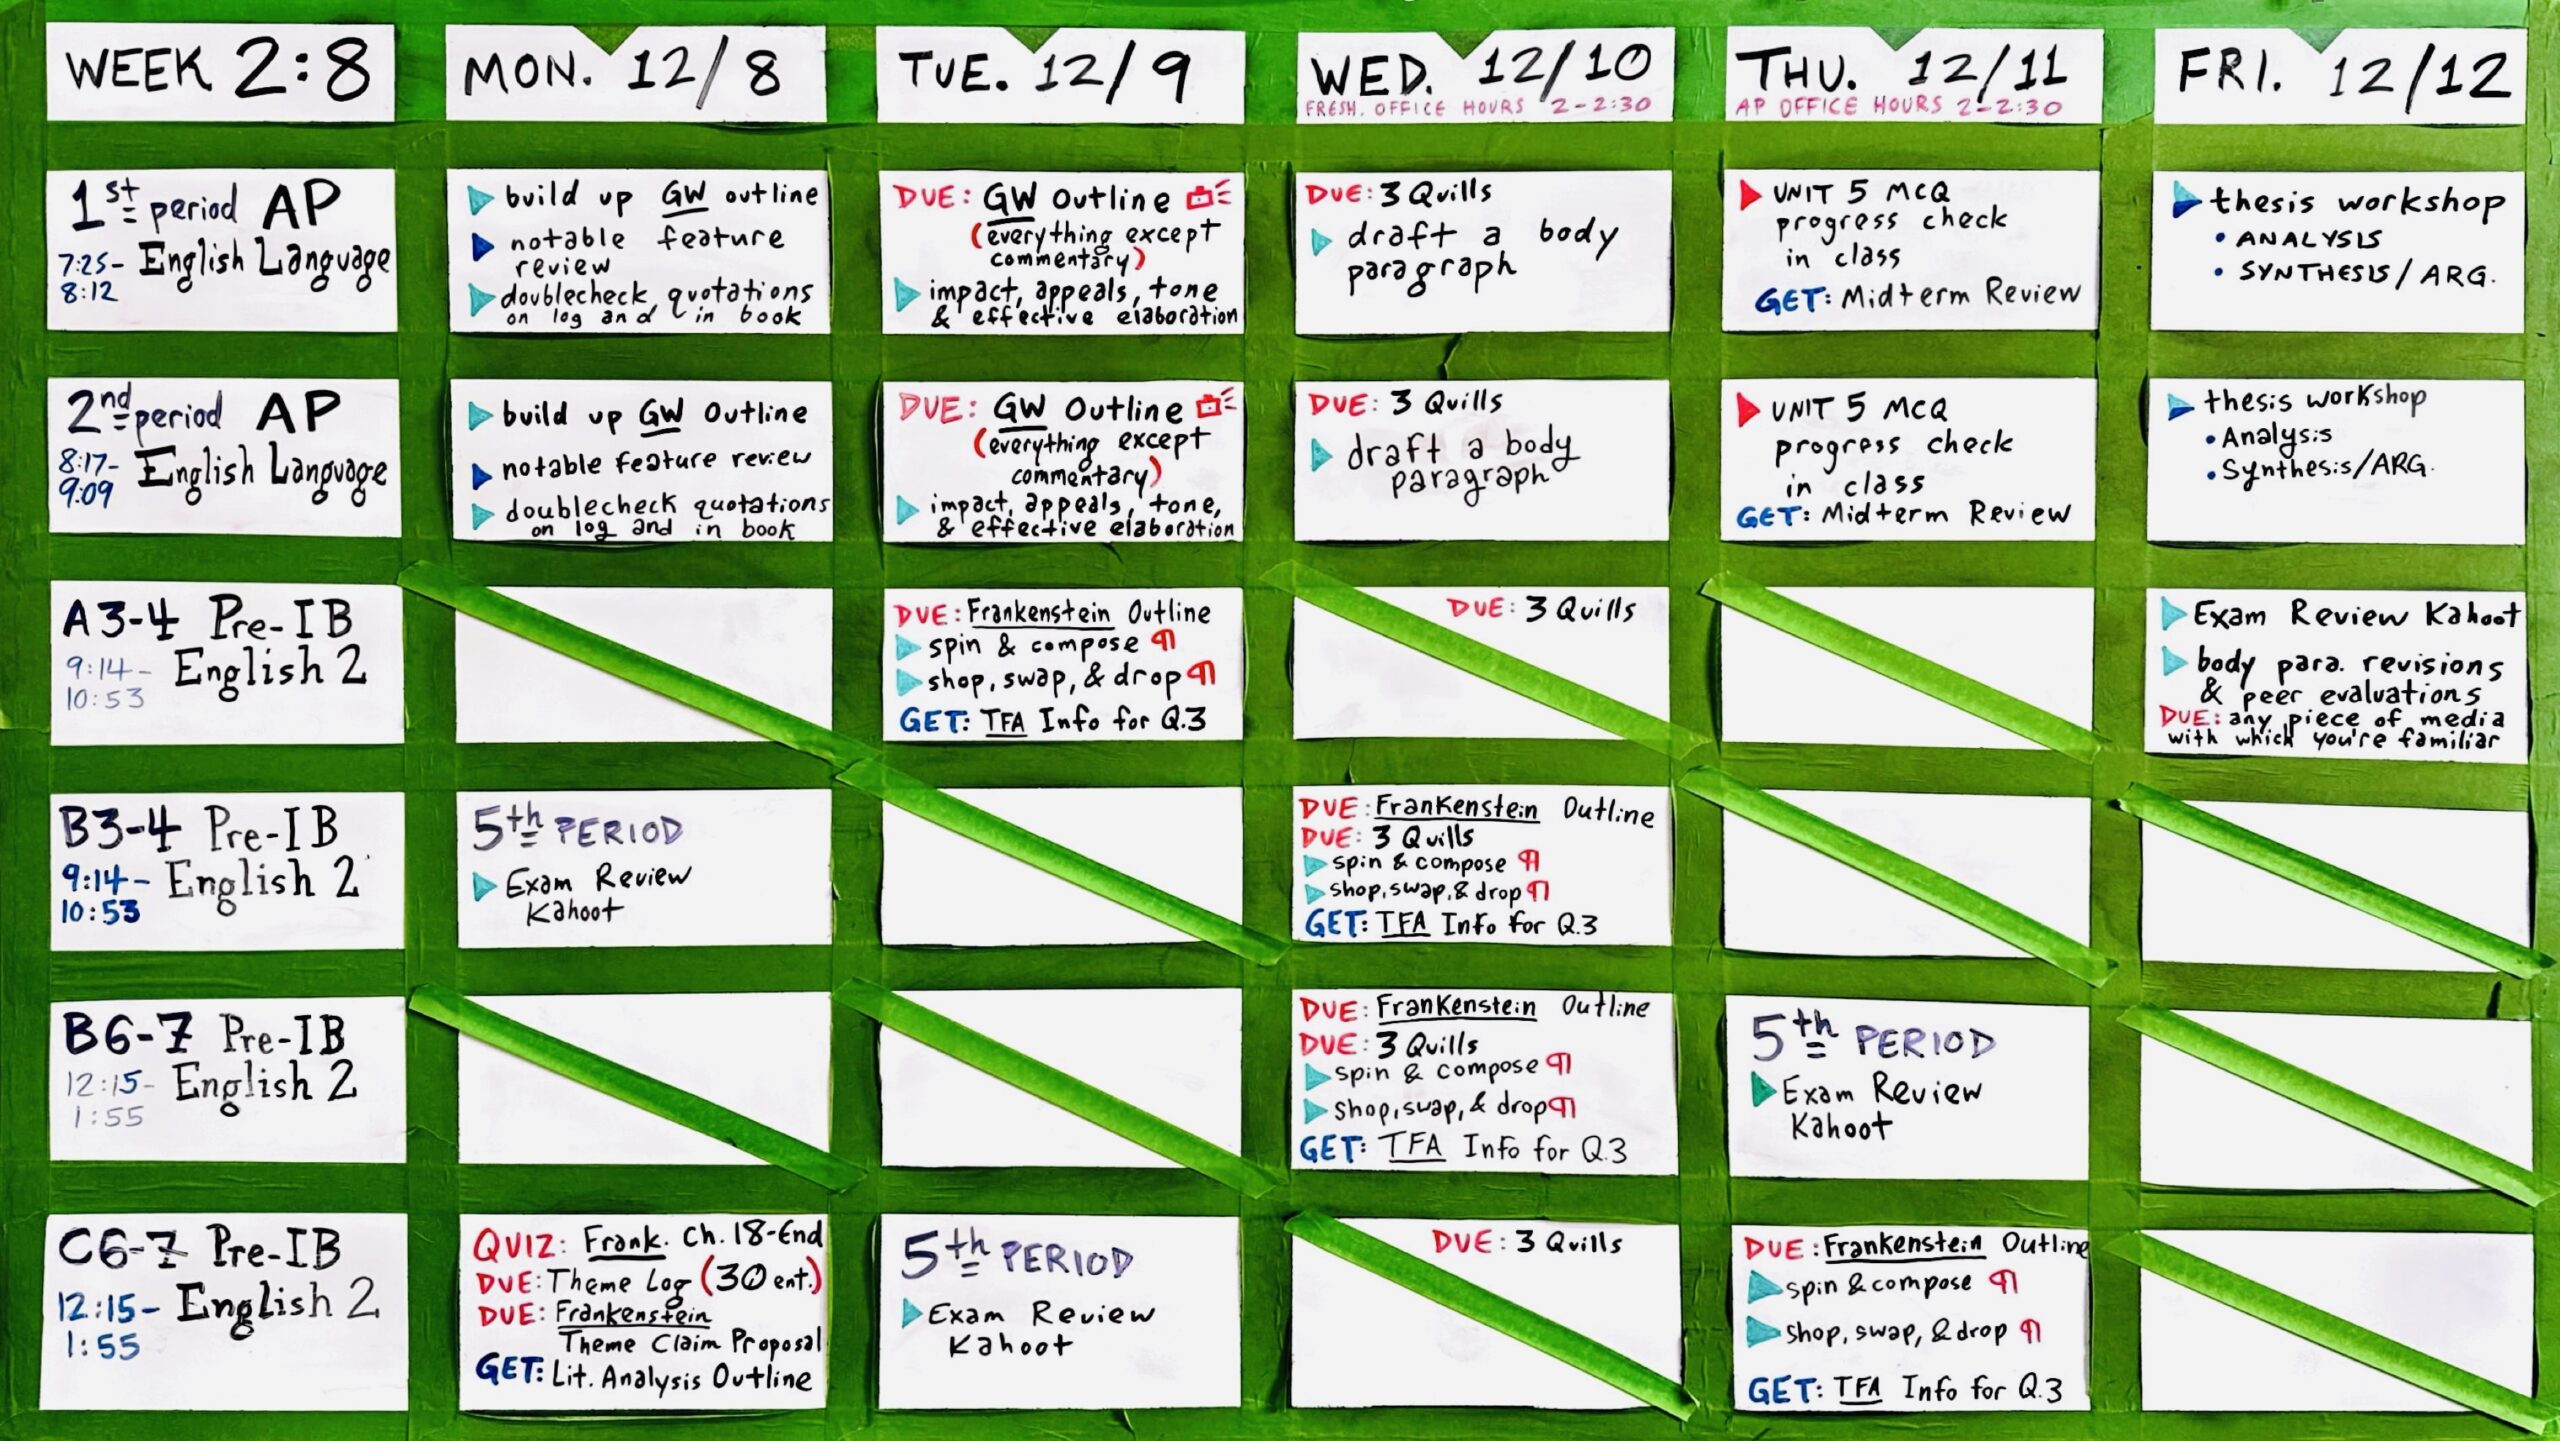 WEEK 2:8
MON. 12/8
TUE. 12/9
WED. 12/10
FRESH. OFFICE HOURS 2-2:30
THU. 12/11
AP OFFICE HOURS 2-2:30
FRI. 12/12
1st period AP
7:25- English Language
8:12
build up GW outline
notable feature
review
doublecheck quotations
on log and in book
DUE: GW Outline
(everything except
commentary)
impact, appeals, tone
& effective elaboration
DUE: 3 Quills
draft a body
paragraph
UNIT 5 MCQ
progress check
in class
GET: Midterm Review
thesis workshop
• ANALYSIS
• SYNTHESIS/ARG.
2nd period AP
8:17- English Language
9:09
build up GW Outline
notable feature review
doublecheck quotations
on log and in book
DUE: GW Outline
(everything except
commentary)
impact, appeals, tone,
& effective elaboration
DUE: 3 Quills
draft a body
paragraph
UNIT 5 MCQ
progress check
in class
GET: Midterm Review
thesis workshop
• Analysis
• Synthesis/ARG.
A3-4 Pre-IB
9:14- English 2
10:53
DUE: Frankenstein Outline
spin & compose ¶
shop, swap, & drop ¶
GET: TFA Info for Q.3
DUE: 3 Quills
Exam Review Kahoot
body para. revisions
& peer evaluations
DUE: any piece of media
with which you're familiar
B3-4 Pre-IB
9:14- English 2
10:53
5th PERIOD
Exam Review
Kahoot
DUE: Frankenstein Outline
DUE: 3 Quills
spin & compose ¶
shop, swap, & drop ¶
GET: TFA Info for Q.3
B6-7 Pre-IB
12:15- English 2
1:55
DUE: Frankenstein Outline
DUE: 3 Quills
spin & compose ¶
shop, swap, & drop ¶
GET: TFA Info for Q.3
5th PERIOD
Exam Review
Kahoot
C6-7 Pre-IB
12:15- English 2
1:55
QUIZ: Frank. Ch. 18-End
DUE: Theme Log (30 ent.)
DUE: Frankenstein
Theme Claim Proposal
GET: Lit. Analysis Outline
5th PERIOD
Exam Review
Kahoot
DUE: 3 Quills
DUE: Frankenstein Outline
spin & compose ¶
shop, swap, & drop ¶
GET: TFA Info for Q.3